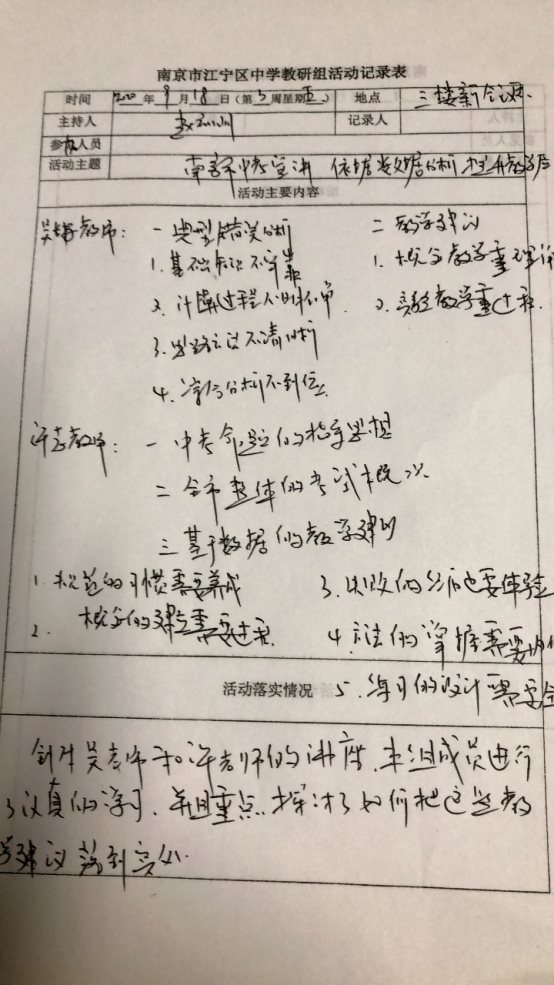 南京市江宁区中学教研组活动记录表
时间 2020年9月18日(第3周星期五) 地点 三楼新会议
主持人 记录人
参加人员
活动主题 南京市中考宣讲 依据 数据分析 提升教学
活动主要内容
吴 老师: 一 典型错误分析 二 教学建议
1. 基础知识不牢靠 1. 概念教学重理
2. 计算过程 2. 实验教学重过程
3. 不清晰
4. 分析不到位
许 老师: 一 中考命题的指导思想
二 全市整体的考试概况
三 基于数据的教学建议
1. 规范的习惯需要养成 3. 失败的 也要体验
2. 概念的建立需要过程 4. 方法的掌握需要
活动落实情况 5. 练习的设计需要
针对吴老师和许老师的讲座,本组成员进行
了认真的学习,并且重点探讨了如何把这些教
学建议落到实处.